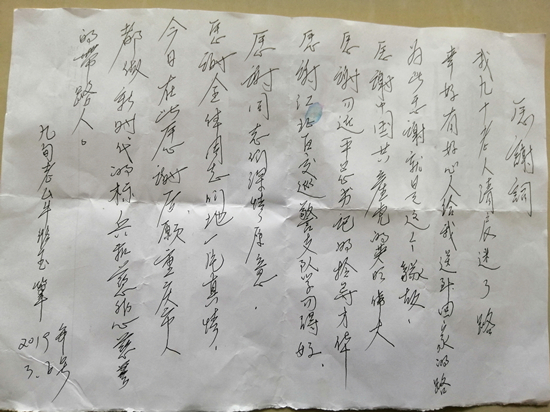 感谢词
我九十老人清晨迷了路
幸好有好心人给我送到回家的路
为此感谢就是这个缘故，
感谢中国共产党的英明伟大
感谢习近平总书记的领导才华
感谢江北区交巡警支队学习得好，
感谢同志们深情厚意，
感谢全体同志们地一片真情，
今日在此感谢万愿重庆市人
都做新时代的标兵和慈祥心慈善
的带路人。
九旬老公牟
笔
2019年
3.6号